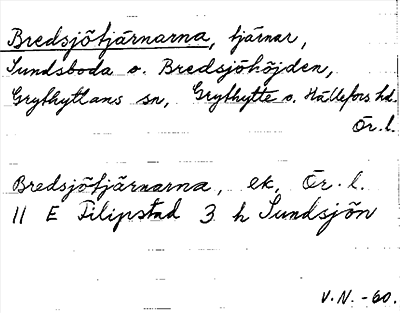 Bredsjötjärnarna, tjärnar,
Sundsboda o. Bredsjöhöjden,
Grythyttans sn, Grythytte o. Hällefors hd.
Ör. l.
Bredsjötjärnarna, ek, Ör. l.
11 E Filipstad 3 h Sundsjön
V.N. -60.